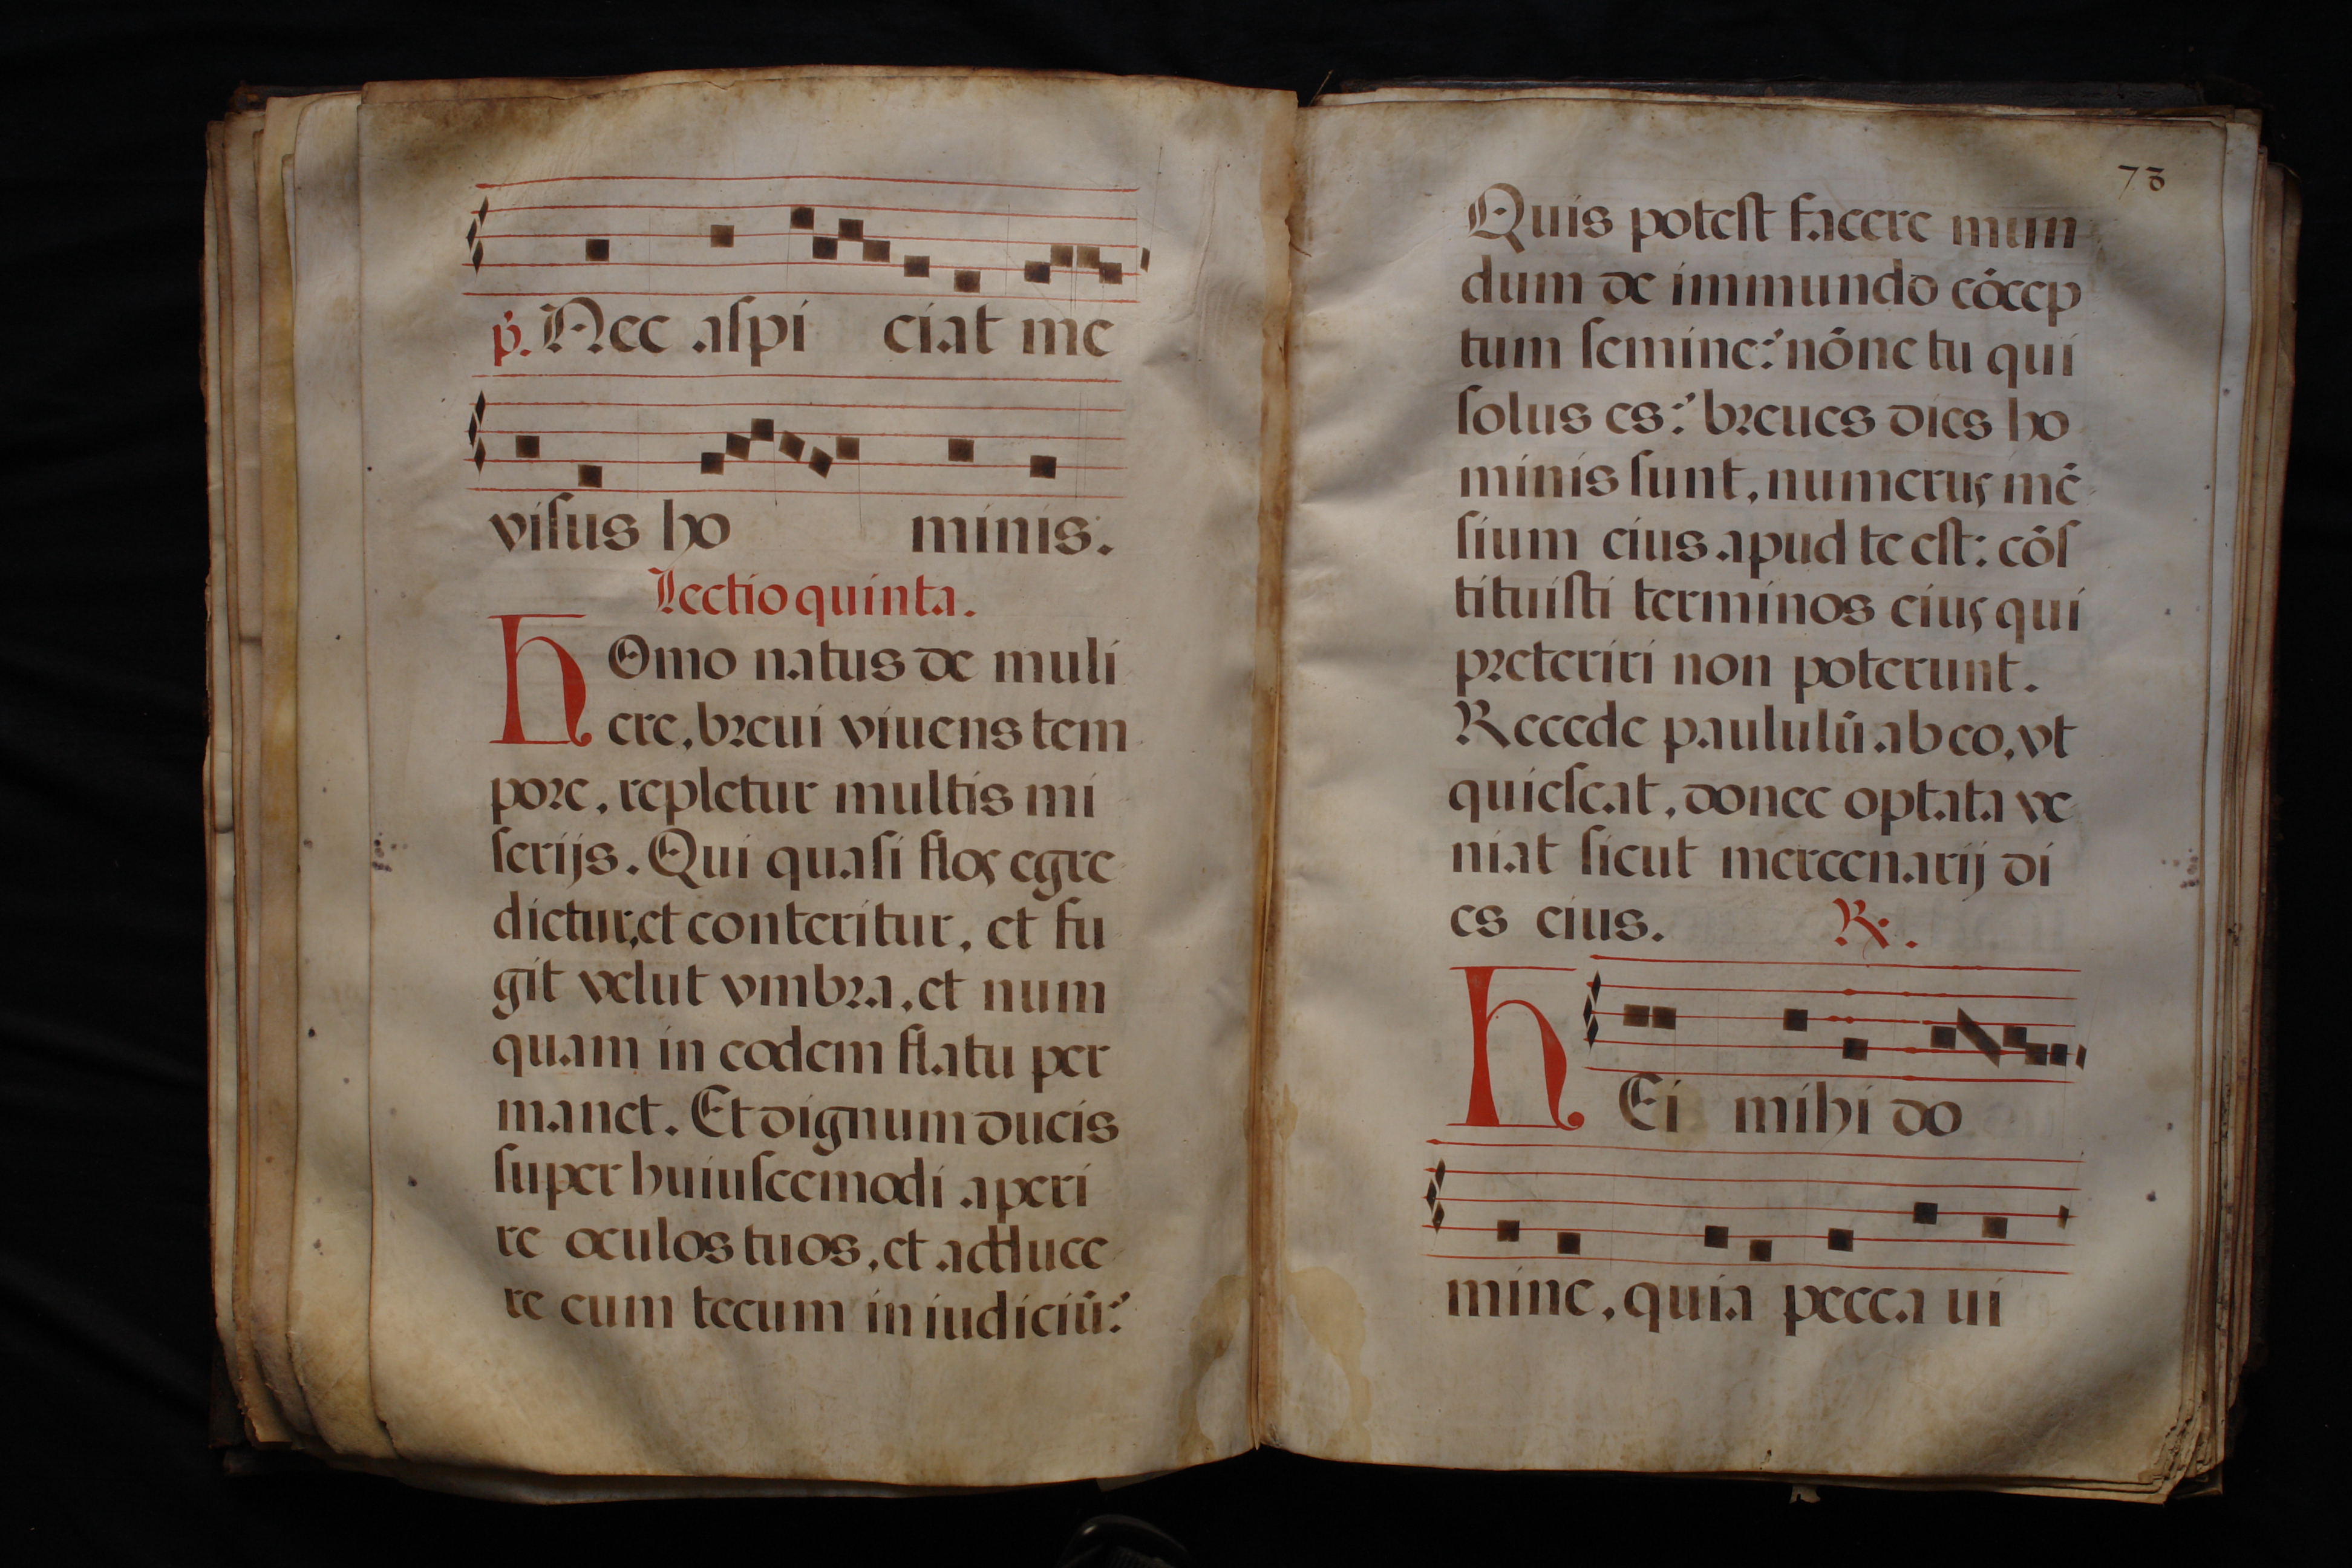 p̃. Nec aſpi ciat me
viſus ho minis.
Lectio quinta.
HOmo natus de muli
ere, breui viuens tem
pore, repletur multis mi
ſerijs. Qui quaſi flos egre
dietur, et conteritur, et fu
git velut vmbra, et num
quam in eodem ſtatu per
manet. Et dignum ducis
ſuper huiuſcemodi aperi
re oculos tuos, et adduce
re eum tecum in iudiciũ:́
78
Quis poteſt facere mun
dum de immundo cõcep
tum ſemine:́ nõne tu qui
ſolus es:́ breues dies ho
minis ſunt, numerus mẽ
ſium eius apud te eſt: cõſ
tituiſti terminos eius qui
preteriri non poterunt.
Recede paululũ ab eo, vt
quieſcat, donec optata ve
niat ſicut mercenarij di
es eius. ℟.
HEi mihi do
mine, quia pecca ui